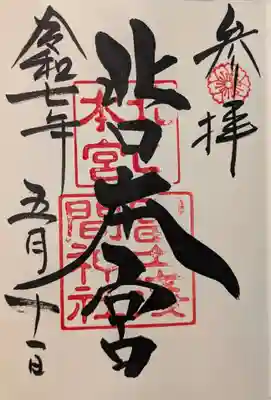 参拝
北口本宮
北口
本宮
冨士淺
間神社
令和七年
五月十一日